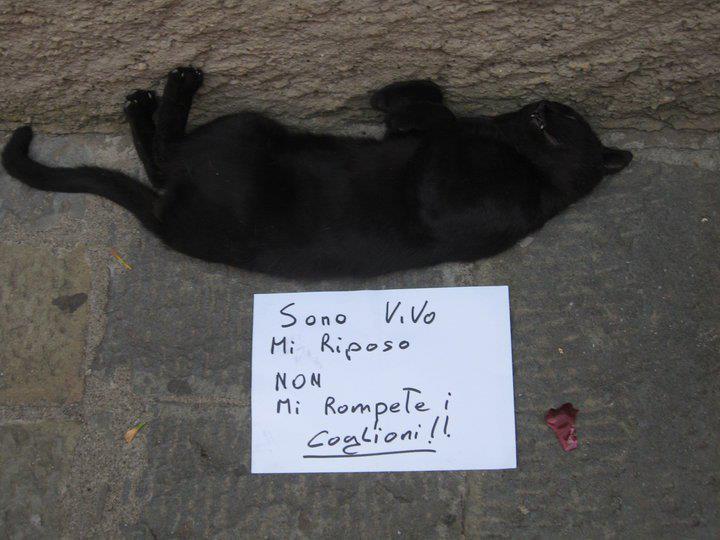 Sono ViVo
Mi Riposo
NON
Mi Rompete i
Coglioni!!